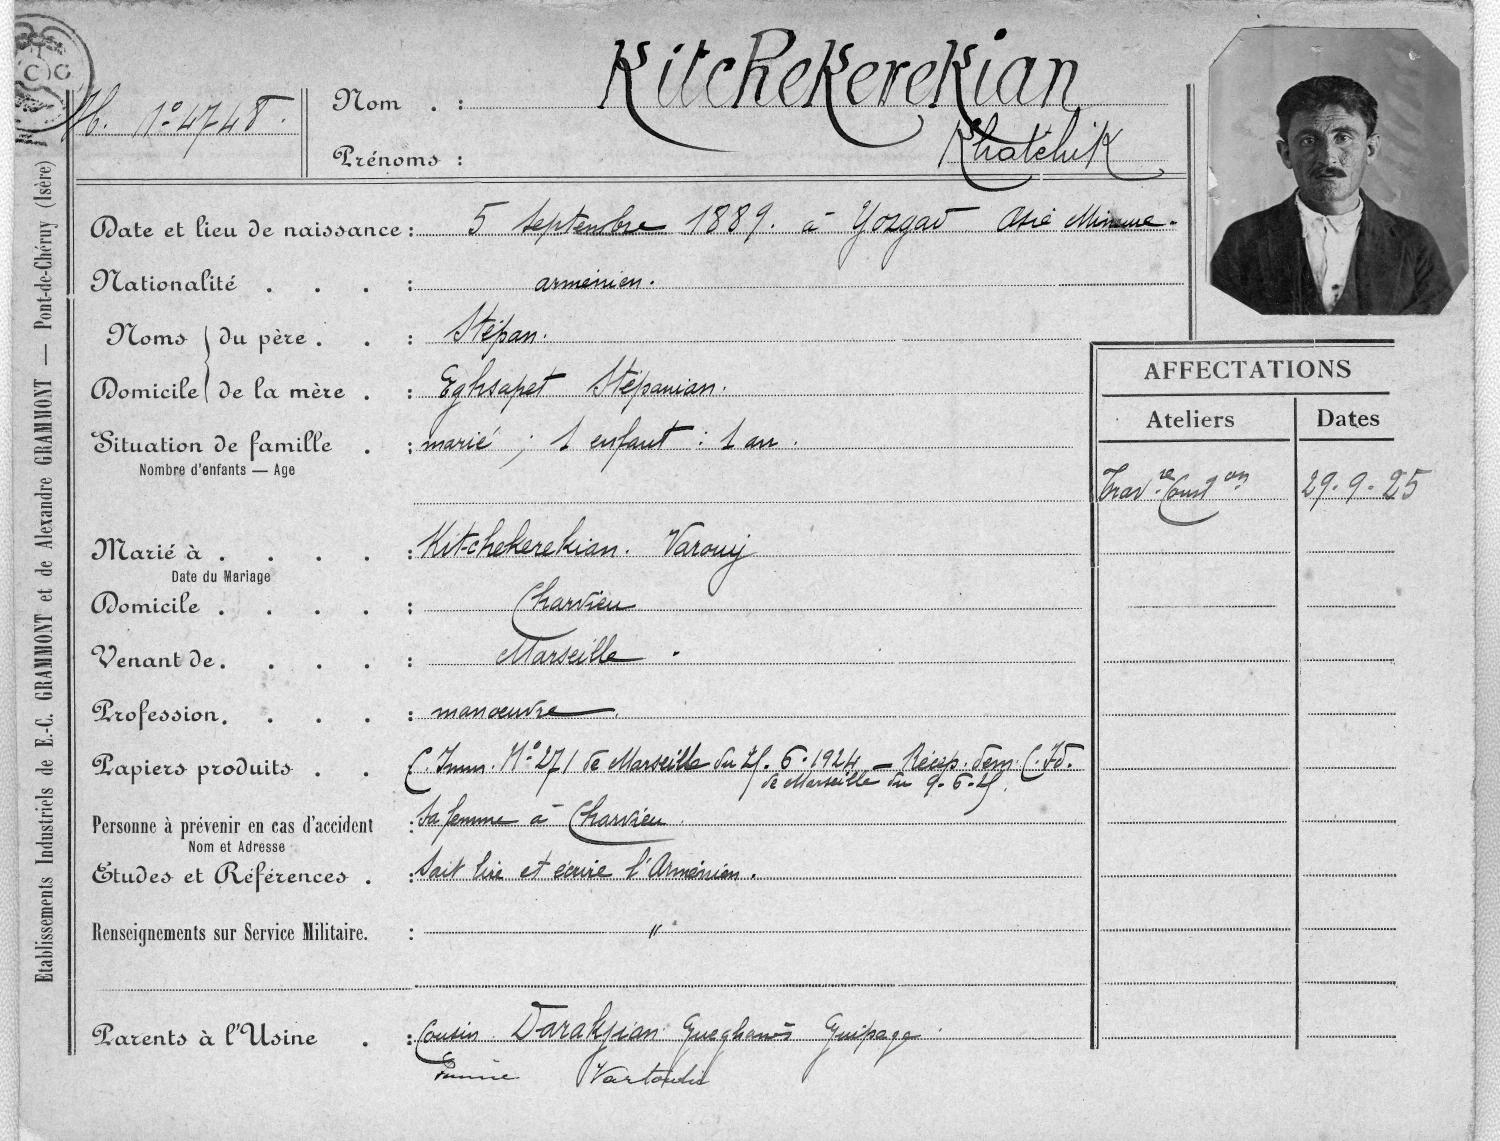 H. N° 4748.
Nom . : Kitchekerekian
Prénoms : Khatchik
Date et lieu de naissance : 5 Septembre 1889. à Yozgad Asie Mineure.
Nationalité . . . : arménien.
Noms du père . . : Stépan.
Domicile de la mère . : Eghsapet Stépanian.
Situation de famille . : marié ; 1 enfant : 1 an.
Nombre d'enfants — Age
Marié à . . . . : Kitchekerekian. Varouij
Date du Mariage
Domicile . . . . : Charvieu
Venant de . . . . : Marseille .
Profession . . . . : manœuvre
Papiers produits . . C. Imm. N° 271 de Marseille du 25. 6. 1924 – Récép. dem. C. Id.
de Marseille du 9-6-25.
Personne à prévenir en cas d'accident : Sa femme à Charvieu
Nom et Adresse
Etudes et Références . : Sait lire et écrire l'Arménien.
Renseignements sur Service Militaire. : "
Parents à l'Usine . : Cousin Darakjian
Etablissements Industriels de E.-C. GRAMMONT et de Alexandre GRAMMONT — Pont-de-Chéruy (Isère)
AFFECTATIONS
Ateliers Dates
Trav.re Const.on 29-9-25